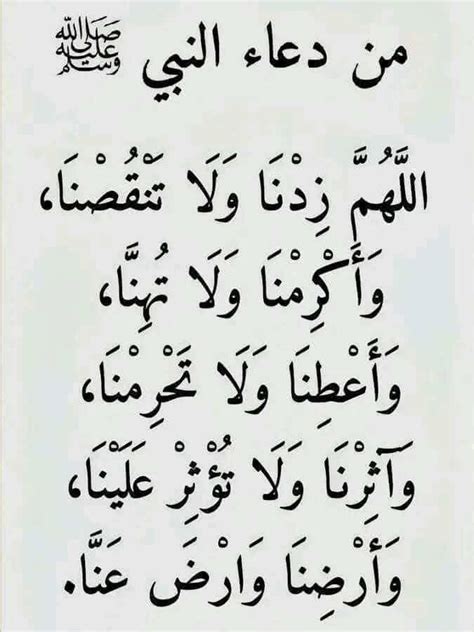 من دعاء النبي ﷺ
اللَّهُمَّ زِدْنَا وَلَا تَنْقُصْنَا،
وَأَكْرِمْنَا وَلَا تُهِنَّا،
وَأَعْطِنَا وَلَا تَحْرِمْنَا،
وَآثِرْنَا وَلَا تُؤْثِرْ عَلَيْنَا،
وَأَرْضِنَا وَارْضَ عَنَّا.